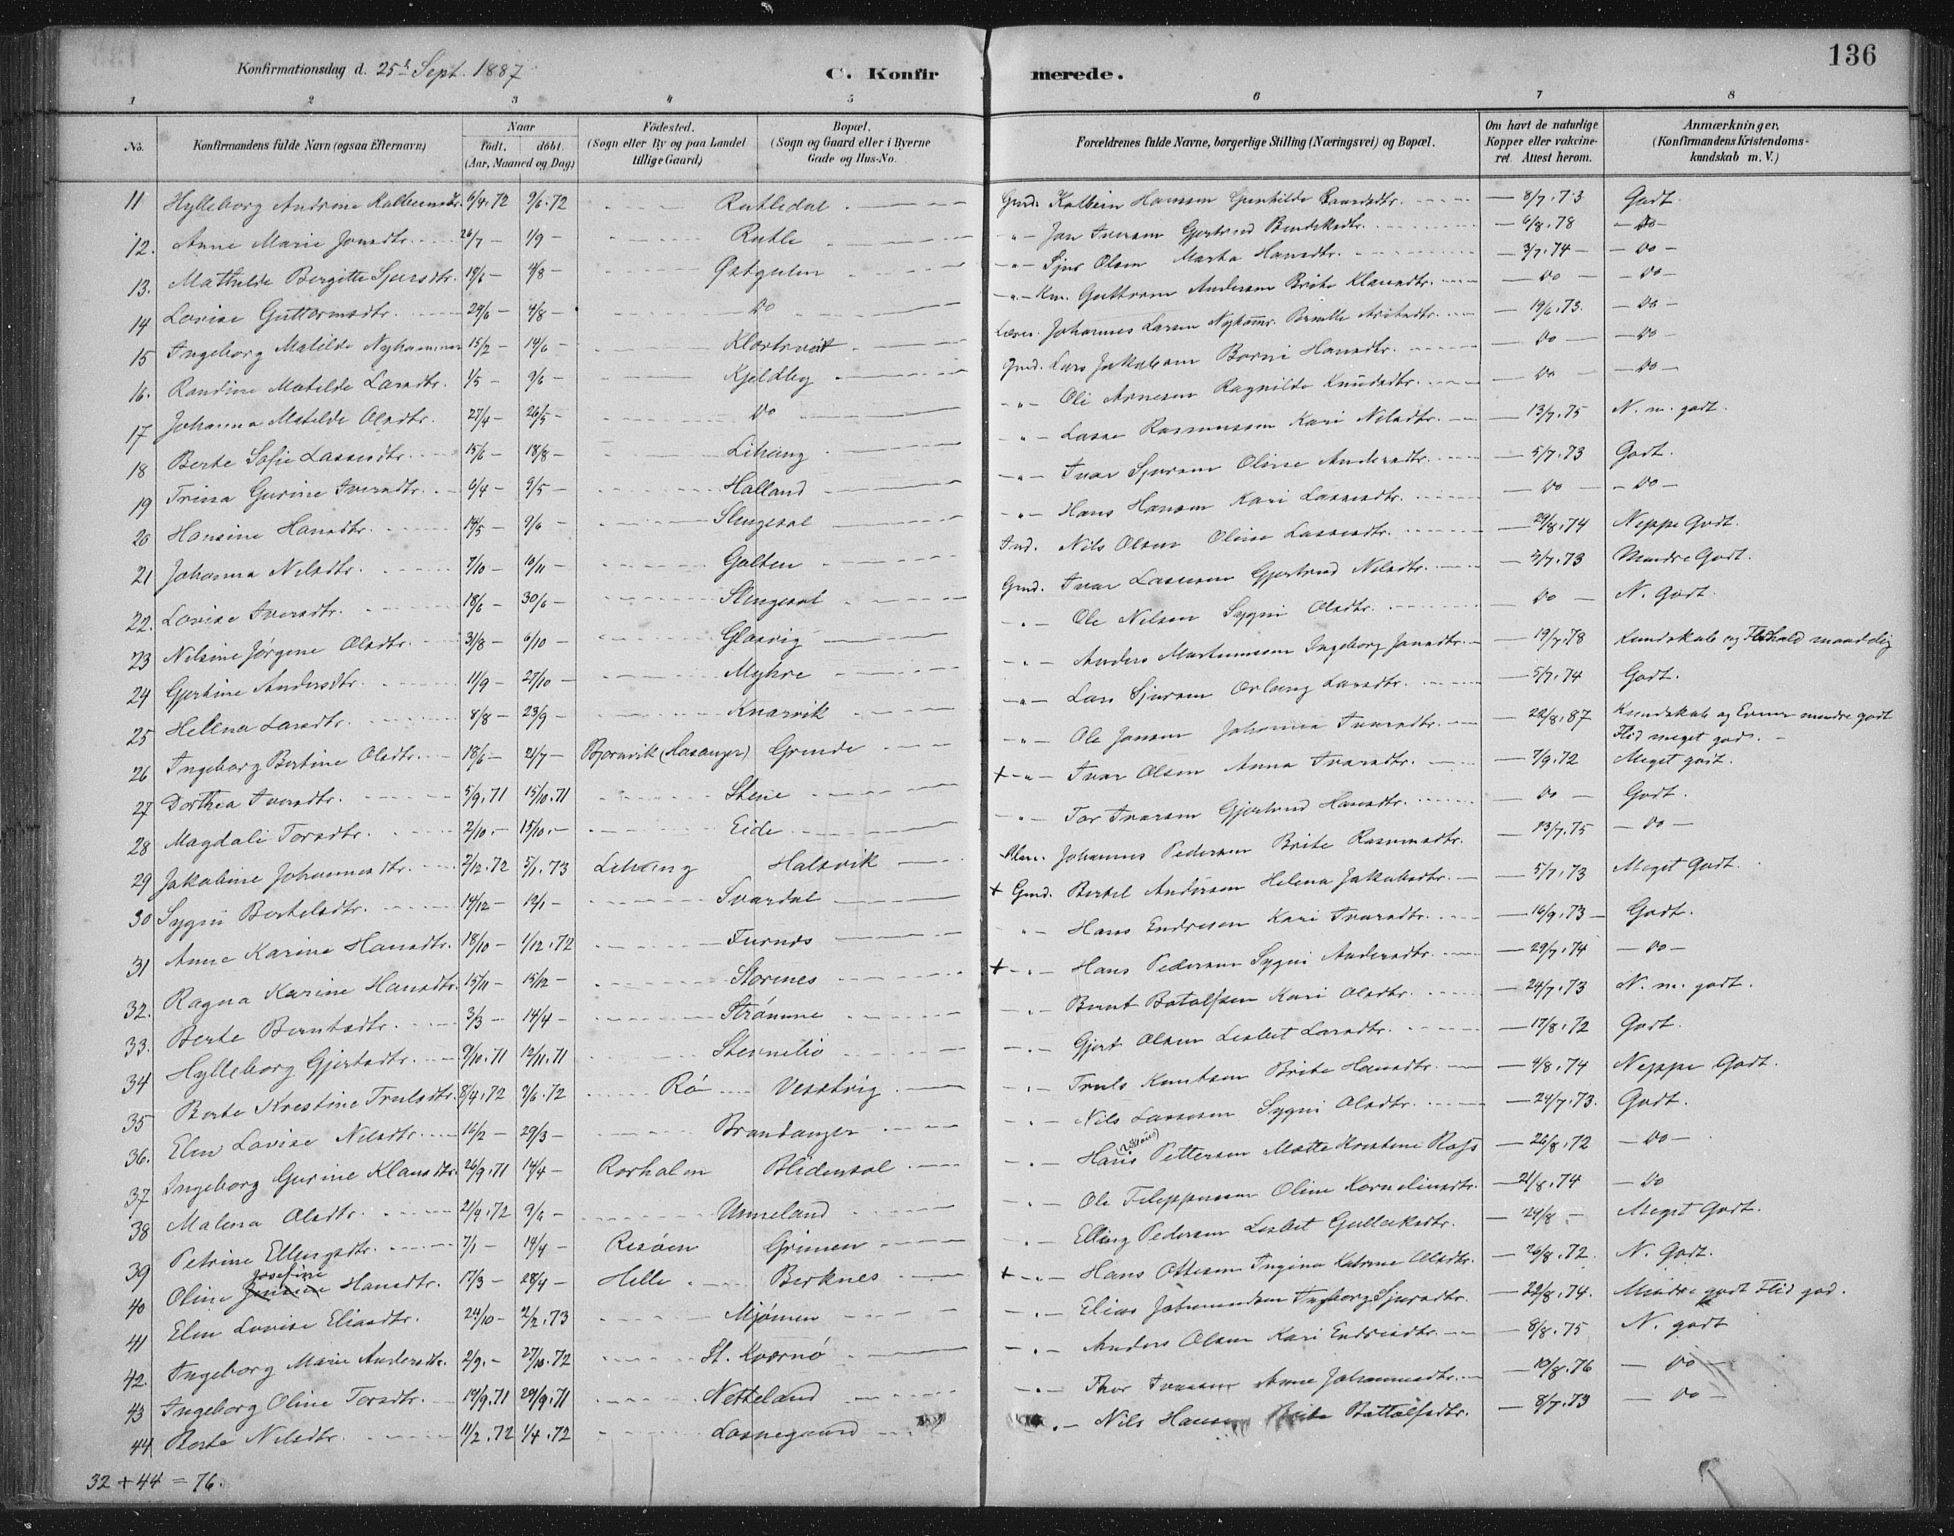 136
Konfirmationsdag d. 25de Sept. 1887
C. Konfirmerede.
1 2 3 4 5 6 7 8
No. Konfirmandens fulde Navn (ogsaa Efternavn) Naar født. døbt. (Aar, Maaned og Dag) Fødested. (Sogn eller By og paa Landet tillige Gaard) Bopæl. (Sogn og Gaard eller i Byerne Gade og Hus-No. Forældrenes fulde Navne, borgerlige Stilling (Næringsvei) og Bopæl. Om havt de naturlige Kopper eller vakcineret. Attest herom. Anmærkninger. (Konfirmandens Kristendomskundskab m. V.)
11 Hylleborg Andrine Kolbeensdtr. 6/4.72 9/6.72 Rutledal Gmd. Kolbein Hansen Gunhilde 8/7.73 Godt.
12. Anne Marie Jonsdtr. 26/7 – 1/9 – Rutle – " – Jon Iversen Gjertrud Bendiksdtr. 6/8.78 – Do –
13. Mathilde Bergitte Sjursdtr. 19/6 – 4/8 – Østgulen – " – Sjur Olsen Marta Hansdtr. 3/7.74 – Do –
14 Lovise Guttormsdtr. 29/6 – 4/8 – Do – " – Km. Guttorm Andersen Brite Klausdtr. Do – Do –
15 Ingeborg Matilde Nyhammer 15/2 – 14/6 – Johannes Larsen Nyhamr. 19/6.73. – Do –
16. Randine Matilde Larsdtr. 1/5 – 9/6 – Kjeldby Gmd. Lars Jakobsen Hansdtr. Do – Do –
17 Johanna Matilde Olsdtr. 27/4 – 26/5 – Do – " – Ole Arnesen Ragnilde Knudsdtr. Do – Do –
18 Berte Sofie Lassesdtr. 15/6 – 18/8 – Lihaug – " – Lasse Rasmussen Kari Nilsdtr. 13/7.75 N. m. godt.
19 Trina Gurine Iversdtr. 6/4 – 9/5 – Halland – " – Ivar Sjursen Oline Andersdtr. 5/7.73 Godt.
20 Hansine Hansdtr. 14/5 – 9/6 – Slengesol – " – Hans Hansen Kari Lassesdtr. Do – Do –
21 Johanna Nilsdtr. 7/10 – 10/11 – Golten Ind. Nils Olsen Oline Lassesdtr. 29/8.74 Neppe Godt.
22. Lovise Iversdtr. 18/6 – 30/6 – Slengesol Gmd. Ivar Lassesen Gjertrud Nilsdtr. 5/7.73 Mindre Godt.
23 Nilsine Jørgine Olsdtr. 31/8 – 6/10 – Glosvig – " – Ole Nilsen Sygni Olsdtr. Do – N. Godt.
24 Gjertine Andersdtr. 11/9 – 27/10 – Myhre – " – Anders Martinussen Ingeborg Jonsdtr. 19/7.78 Kundskab og Forhold maadelig
25 Helena Larsdtr. 8/8 – 23/9 – Knarvik – " – Lars Sjursen Larsdtr. 5/7.74 Godt.
26 Ingeborg Bertine Olsdtr. 18/6 – 21/7 – Bjørnvik (Masanger) Grinde – " – Ole Jansen Johanna Ivarsdtr. 22/8.87 Kundskab og Evner mindre godt Flid meget god. –
27 Dorthea Iversdtr. 5/9.71 15/10.71 Stene + – " – Ivar Olsen Anna Ivarsdtr. 7/9.72 Meget godt.
28 Magdali Torsdtr. 2/10. – 15/10. – Eide – " – Tor Ivarsen Gjertrud Hansdtr. Do – Godt.
29 Jakobine Johannesdtr. 2/12.72 5/1.73 Lihaug Halsvik Johannes Pedersen Brite Rasmusdtr. 13/7.75 – Do –
30 Sygni Bertelsdtr. 14/12 – 12/1 – Svardal + Gmd. Bertel Andersen Helena Jakobsdtr. 5/7.73 Meget Godt.
31 Anne Karine Hansdtr. 18/10 – 1/12.72 Furnes – " – Hans Endresen Kari Ivarsdtr. 16/9.73 – Godt.
32. Ragna Karine Hansdtr. 15/11 – 15/12 – Storenes + – " – Hans Pedersen Sygni Andersdtr. 29/7.74 – Do –
33. Berte Berntsdtr. 3/3 – 14/4 – Strømme – " – Bernt Batalfsen Kari Olsdtr. 24/7.73 N. m. godt.
34 Hylleborg Gjertsdtr. 9/10.71 12/11.71 Sternelio – " – Gjert Olsen Lisbet Larsdtr. 17/8.72 Godt.
35 Berte Kristine Trulsdtr. 8/4.72 2/6.72 Rø Vesetvig – " – Truls Knutsen Brite Hansdtr. 4/8.74 Neppe Godt.
36. Elen Lovise Nilsdtr. 16/2 – 29/3 – Brandanger – " – Nils Lassesen Sygni Olsdtr. 24/7.73. Godt.
37 Ingeborg Gurine Klausdtr. 26/9.71 14/4 – Rorholm Hidensol – " – Hans (Klaus) Pettersen Mette Kristine Ross 26/8.72 – Do –
38 Malena Olsdtr. 21/4.72 9/6 – Unneland – " – Ole Filippussen Oline Korneliusdtr. 21/8.74 – Do
39 Petrine Ellingsdtr. 7/1 – 14/4 – Risøen Grimen – " – Elling Pedersen Lisbet Gullaksdtr. 24/8 – Meget Godt.
40 Oline Josefine Hansdtr. 17/3 – 28/4 – Helle Berknes + – " – Hans Ottesen Ingina Katrine Olsdtr. 26/8.72. N. Godt.
41 Elen Lovise Eliasdtr. 24/10 – 2/2.73 Mjømen – " – Elias Johannessen Ingeborg Sjursdtr. 22/8.74. Mindre godt Flid god.
42. Ingeborg Marie Andersdtr. 2/9. – 27/10.72 St. Kvernø – " – Anders Olsen Kari Endresdtr. 8/8.75 N. godt
43 Ingeborg Oline Torsdtr. 19/9.71 29/9.71 Netteland – " – Thor Ivarsen Anne Johannesdtr. 10/8.76 – Do –
44 Berte Nilsdtr. 11/2.72 1/4.72 Losnegaard – " – Nils Hansen Brite Battalfsdtr. 8/7.73 – Do –
32 + 44 = 76.